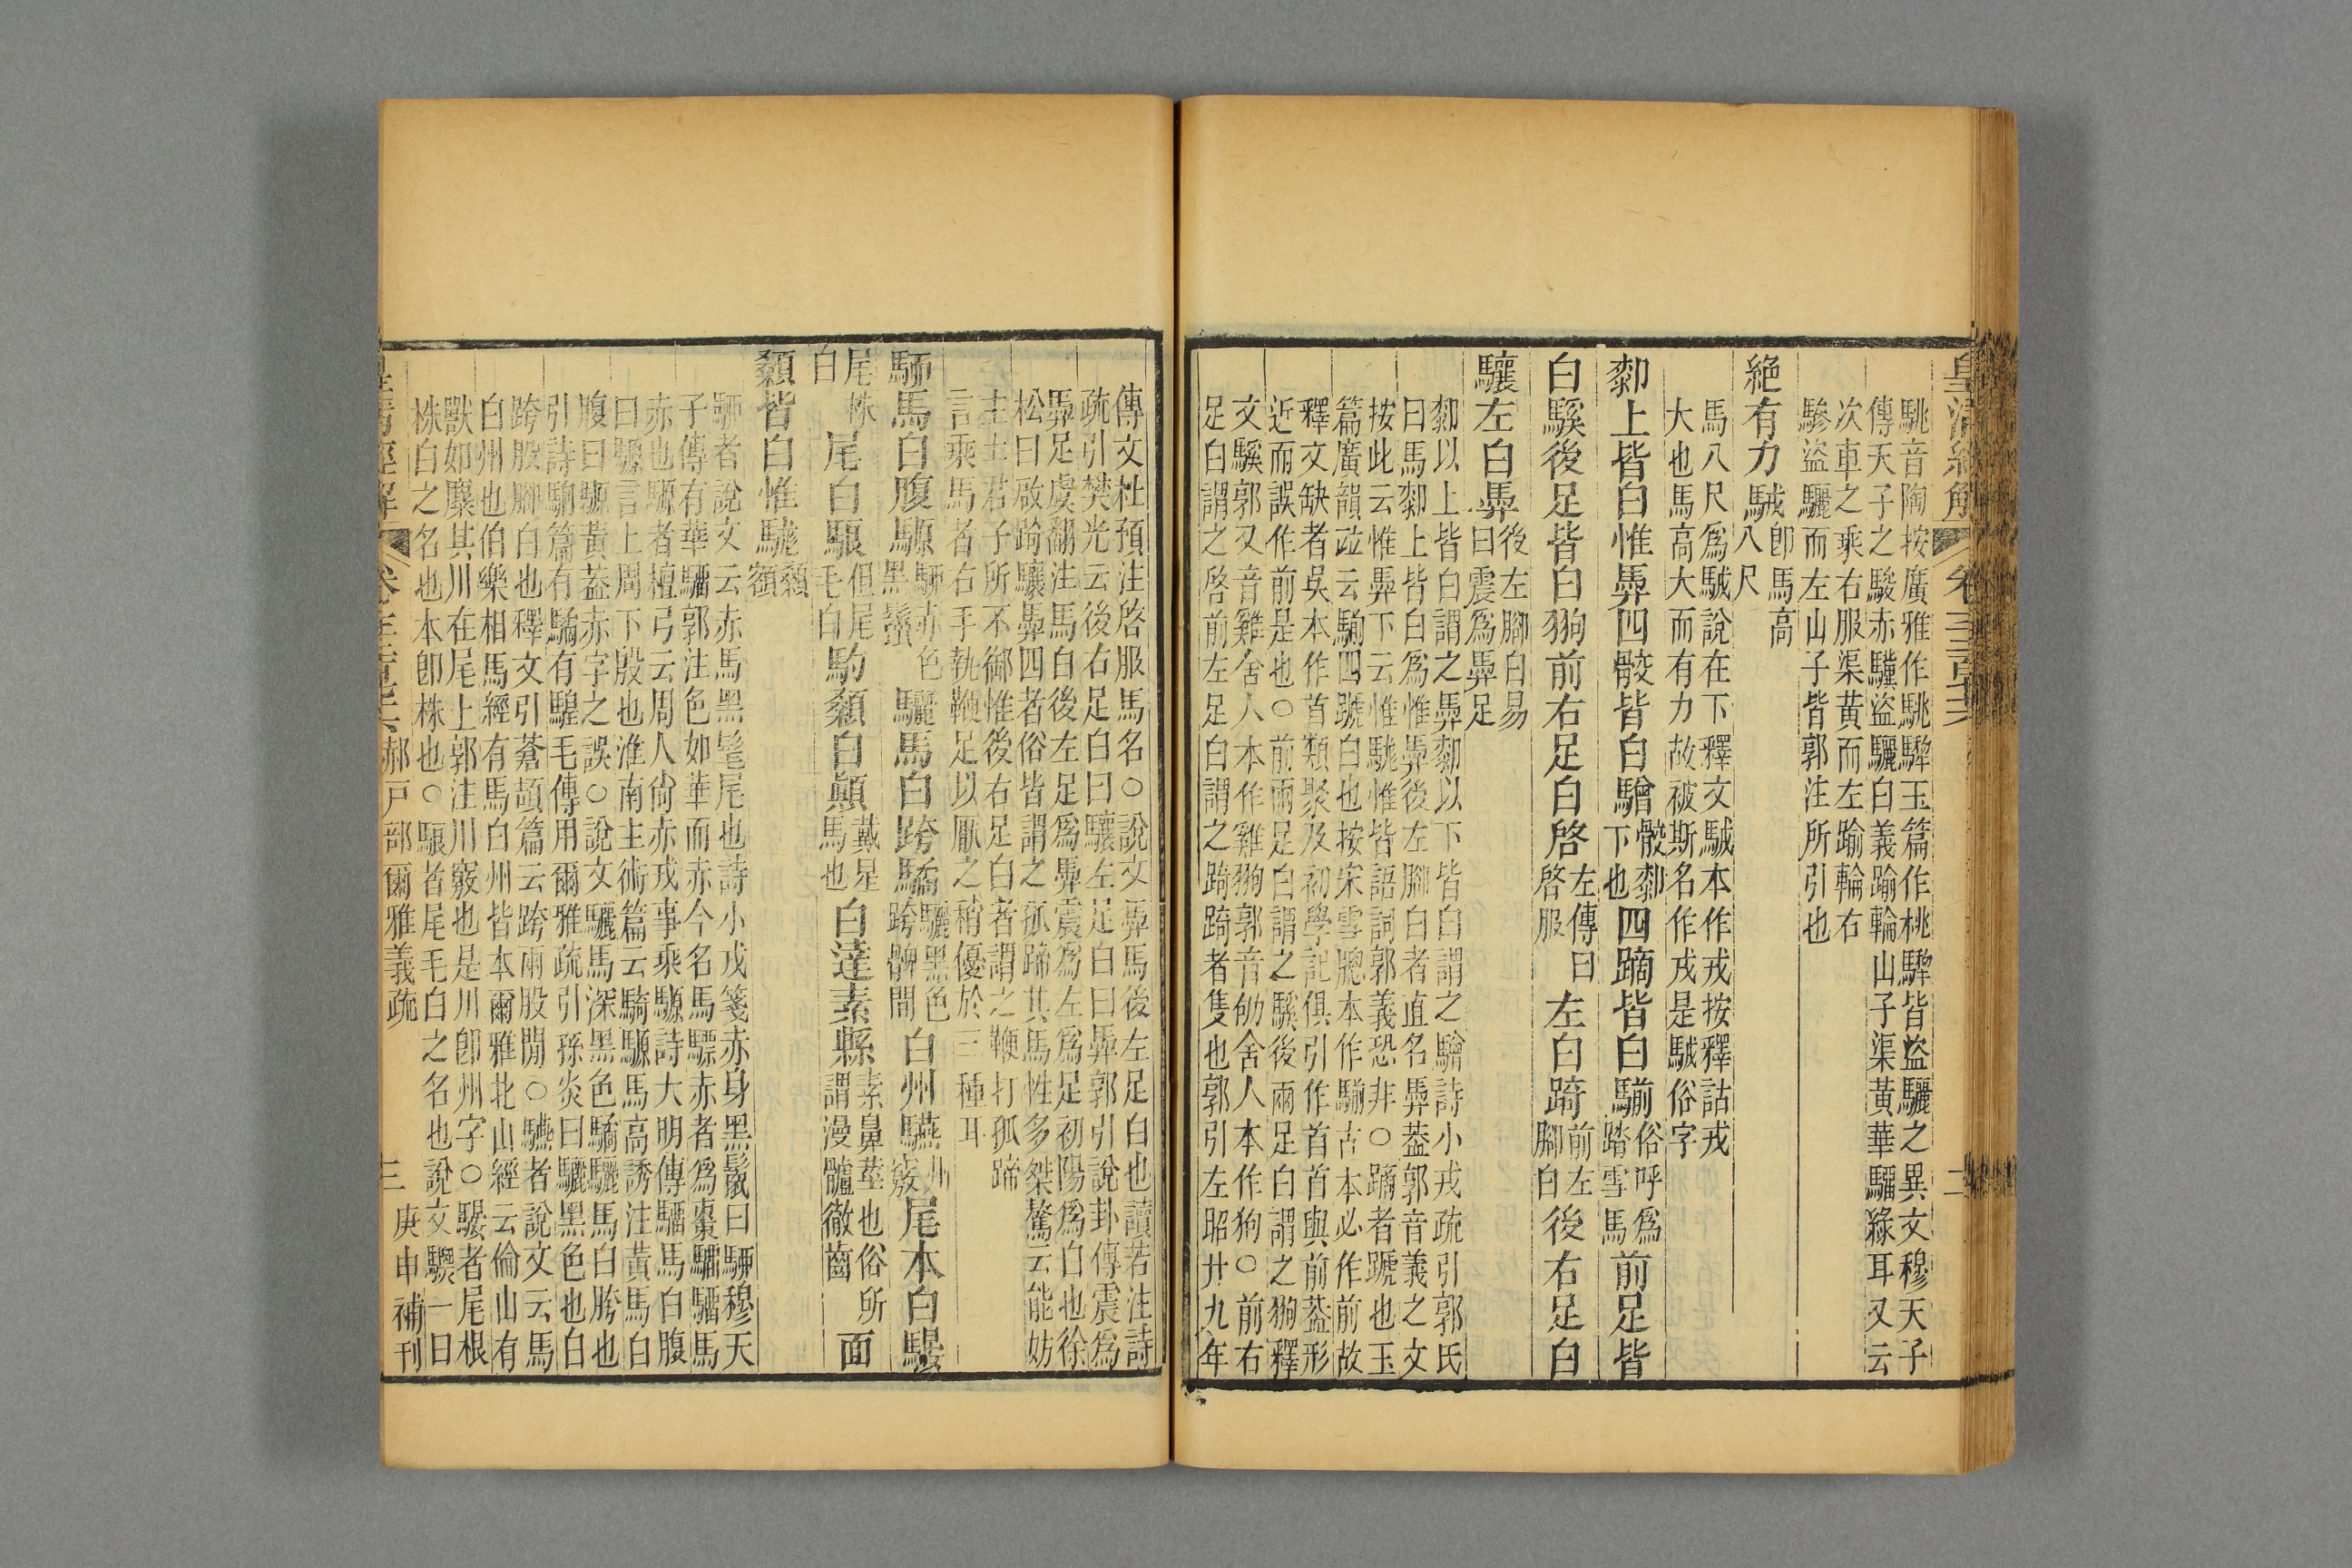 皇清經解 卷千二百七十六 二
駣音陶按廣雅作駣騂玉篇作桃騂皆盜驪之異文穆天子
傳天子之駿赤驥盜驪白義踰輪山子渠黃華騮綠耳又云
次車之乘右服渠黃而左踰輪右
驂盜驪而左山子皆郭注所引也
絶有力駥
卽馬高
八尺
馬八尺爲駥說在下釋文駥本作戎按釋詁戎
大也馬高大而有力故被斯名作戎是駥俗字
厀上皆白惟馵四骹皆白驓
骹厀
下也
四蹢皆白騚
俗呼爲
踏雪馬
前足皆
白騱後足皆白翑前右足白啓
左傳曰
啓服
左白踦
前左
腳白
後右足白
驤左白馵
後左腳白易
曰震爲馵足
厀以上皆白謂之馵厀以下皆白謂之驓詩小戎疏引郭氏
曰馬厀上皆白爲惟馵後左腳白者直名馵葢郭音義之文
按此云惟馵下云惟駹惟皆語詞郭義恐非○蹢者蹏也玉
篇廣韻竝云騚四蹏白也按宋雪牕本作騚古本必作前故
釋文缺者吳本作首類聚及初學記俱引作首首與前葢形
近而誤作前是也○前兩足白謂之騱後兩足白謂之翑釋
文騱郭又音雞舍人本作雞翑郭音劬舍人本作狗○前右
足白謂之啓前左足白謂之踦踦者隻也郭引左昭廿九年
傳文杜預注啓服馬名○說文馵馬後左足白也讀若注詩
疏引樊光云後右足白曰驤左足白曰馵郭引說卦傳震爲
馵足虞翻注馬白後左足爲馵震爲左爲足初陽爲白也徐
松曰啟踦驤馵四者俗皆謂之孤蹄其馬性多桀驁云能妨
主主君子所不御惟後右足白者謂之鞭打孤蹄
言乘馬者右手執鞭足以厭之稍優於三種耳
騂馬白腹騵
駵赤色
黑鬣
驪馬白跨驈
驪黑色
跨髀閒
白州驠
州
竅
尾本白騴
尾株
白
尾白駺
但尾
毛白
馰顙白顚
戴星
馬也
白達素縣
素鼻莖也俗所
謂漫髗徹齒
面
顙皆白惟駹
顙
額
駵者說文云赤馬黑髦尾也詩小戎箋赤身黑鬣曰駵穆天
子傳有華騮郭注色如華而赤今名馬驃赤者爲棗騮騮馬
赤也騵者檀弓云周人尙赤戎事乘騵詩大明傳騮馬白腹
曰騵言上周下殷也淮南主術篇云騎騵馬高誘注黃馬白
腹曰騵黃葢赤字之誤○說文驪馬深黑色驈驪馬白胯也
引詩駉篇有驈有騜毛傳用爾雅疏引孫炎曰驪黑色也白
跨股腳白也釋文引蒼頡篇云跨兩股閒○驠者說文云馬
白州也伯樂相馬經有馬白州皆本爾雅北山經云倫山有
獸如麋其川在尾上郭注川竅也是川卽州字○騴者尾根
株白之名也本卽株也○駺者尾毛白之名也說文騴一曰
皇清經解 卷千二百七十六 郝戶部爾雅義疏 三 庚申補刊